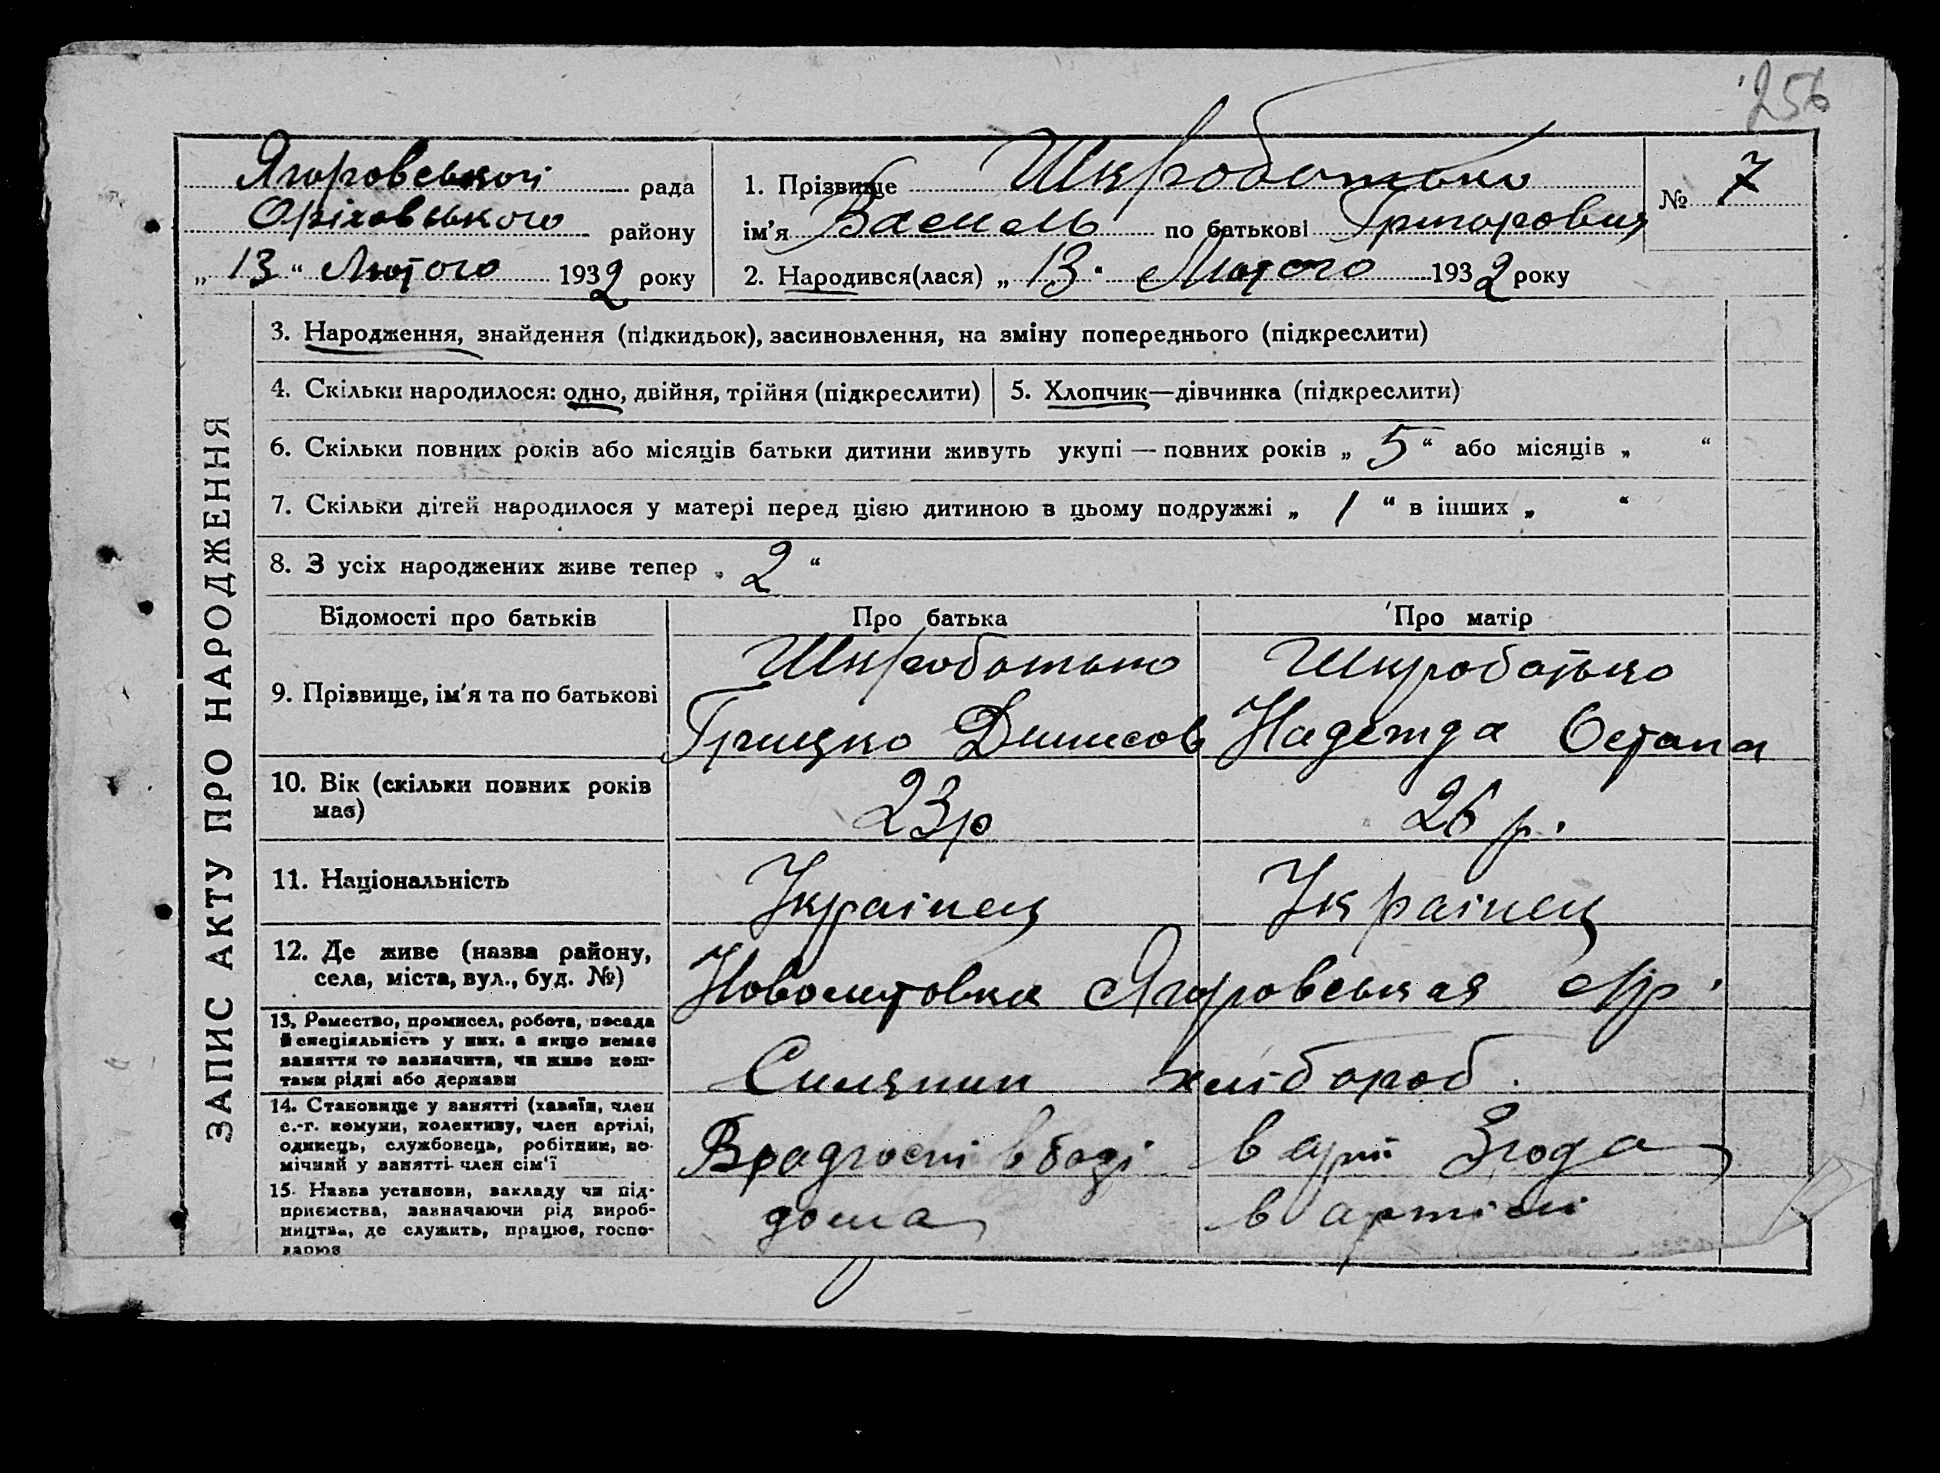 256
Ягоровської рада
Оріховського району
„ 13 “ Лютого 1932 року
1. Прізвище Шкроботько
ім'я Василь по батькові Григорович
№ 7
2. Народився(лася) „ 13 “ Лютого 1932 року
ЗАПИС АКТУ ПРО НАРОДЖЕННЯ
3. Народження, знайдення (підкидьок), засиновлення, на зміну попереднього (підкреслити)
4. Скільки народилося: одно, двійня, трійня (підкреслити)
5. Хлопчик—дівчинка (підкреслити)
6. Скільки повних років або місяців батьки дитини живуть укупі — повних років „ 5 “ або місяців „ “
7. Скільки дітей народилося у матері перед цією дитиною в цьому подружжі „ 1 “ в інших „ “
8. З усіх народжених живе тепер „ 2 “
Відомості про батьків
Про батька
Про матір
9. Прізвище, ім'я та по батькові
Шкроботько
Грицько Денисов
Шкроботько
Надежда Остапа
10. Вік (скільки повних років
має)
23р
26 р.
11. Національність
Українец
Українец
12. Де живе (назва району,
села, міста, вул., буд. №)
Ягоровськая
13. Ремество, промисел, робота, посада
й спеціяльність у них, а якщо немає
заняття то зазначити, чи живе кош-
тами рідні або держави
хлібороб.
14. Становище у занятті (хазяїн, член
с.-г. комуни, колективу, член артілі,
одинець, службовець, робітник, по-
мічний у занятті член сім'ї
в арті Згода
15. Назва установи, закладу чи під-
приємства, зазначаючи рід вироб-
ництва, де служить, працює, госпо-
дарює
дома
в артілі